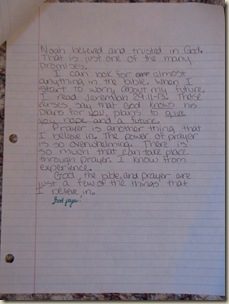 Noah believed and trusted in God.
That is just one of the many
promises.
I can look for almost
anything in the bible. When I
start to worry about my future
I read Jeremiah 29:11-13. These
verses say that God knows his
plans for you, plans to give
you hope and a future.
Prayer is another thing that
I believe in. The power of prayer
is so overwhelming. There is
so much that can take place
through prayer. I know from
experience.
God, the bible, and prayer are
just a few of the things that
I believe in.